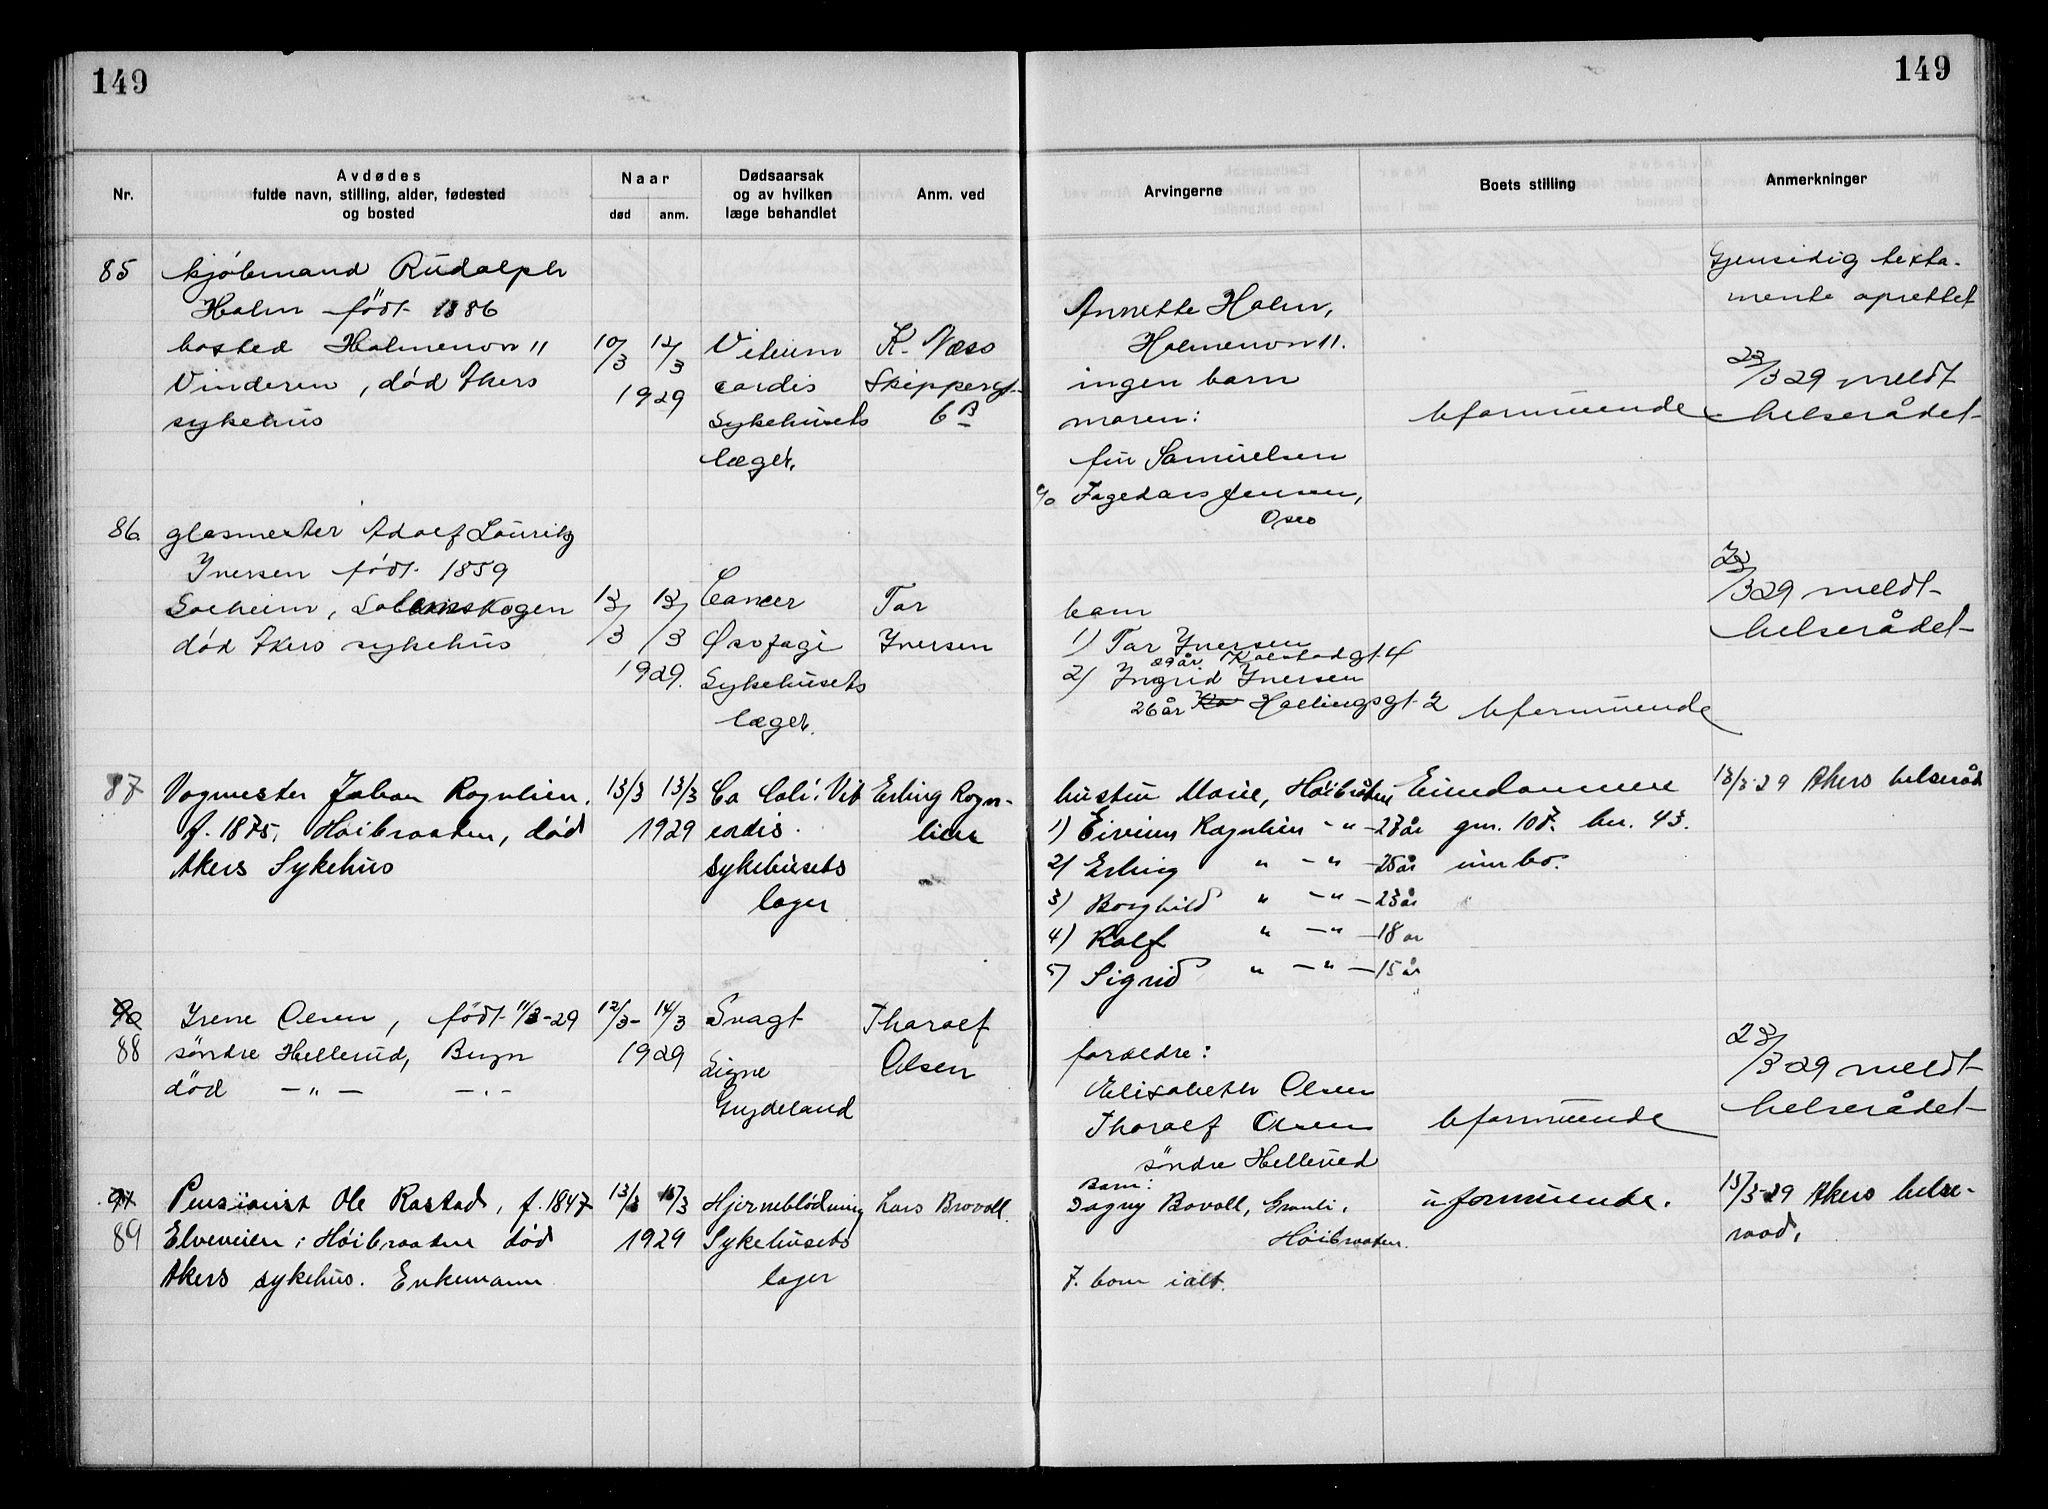 149
149
Nr.
Avdødes
fulde navn, stilling, alder, fødested
og bosted
Naar
død
anm.
Dødsaarsak
og av hvilken
læge behandlet
Anm. ved
Arvingerne
Boets stilling
Anmerkninger
85
kjøbmand Rudolph
Holm født 1886
bosted Holmenvn 11
Vinderen, død Akers
sykehus
10/3 12/3
1929
Vitium
cordis
Sykehusets
læger.
K. Næss
Skippergt.
6B
Annette Holm,
Holmenvn 11.
ingen barn
moren:
fru Samuelsen
c/o Jensen,
Oslo
uformuende
Gjensidig testa-
mente oprettet
23/3 29 meldt
helserådet
86
glasmester Adolf Lauritz
Iversen født 1859
Solheim, Solemskogen
død Akers sykehus
12/3 13/3
1929.
Cancer
Øsofagi
Sykehusets
læger.
Tor
Iversen
barn
1) Tor Iversen
29 år. Kolstadgt 4
2) Ingrid Iversen
26 år Hallingsgt 2
uformuende
23/3 29 meldt
helserådet
87
Vognmester Johan Rognlien.
f. 1875, Høibraaten, død
Akers Sykehus
13/3 13/3
1929
Ca Coli. Vit
cordis.
sykehusets
læger
Erling Rogn-
lien
hustru Marie, Høibråten
1) Eivinn Rognlien - " - 27 år
2) Erling " - " - 25 år
3) Borghild " - " - 23 år
4) Rolf " - " - 18 år
5) Sigrid " - " - 15 år
Eiendommen
gn. 107. bn. 43.
innbo.
13/3-29 Akers helseråd
90
88
Irene Olsen, født 11/3-29
søndre Hellerud, Bryn
død - " - - " -
12/3- 14/3
1929
Svagt
Signe
Grydeland
Tharalf
Olsen
foreldre:
Elisabeth Olsen
Tharalf Olsen
søndre Hellerud
uformuende
23/3 29 meldt
helserådet
91
89
Pensionist Ole Rastad, f. 1847
Elveveien, Høibraaten død
Akers sykehus. Enkemann
13/3 15/3
1929
Hjerneblødning
Sykehusets
læger
Lars Brovoll.
Barn:
Dagny Bovoll, Granli,
Høibraaten.
7. barn ialt.
uformuende.
15/3-29 Akers helse-
raad.